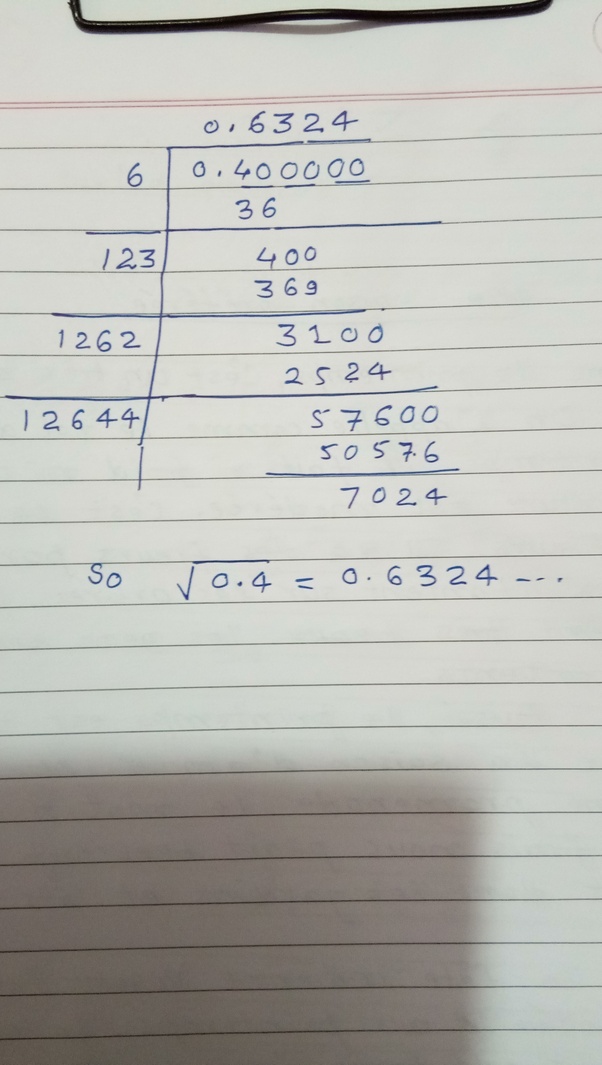 0.6324
6 0.400000
36
123 400
369
1262 3100
2524
12644 57600
50576
7024
So √0.4 = 0.6324 ---